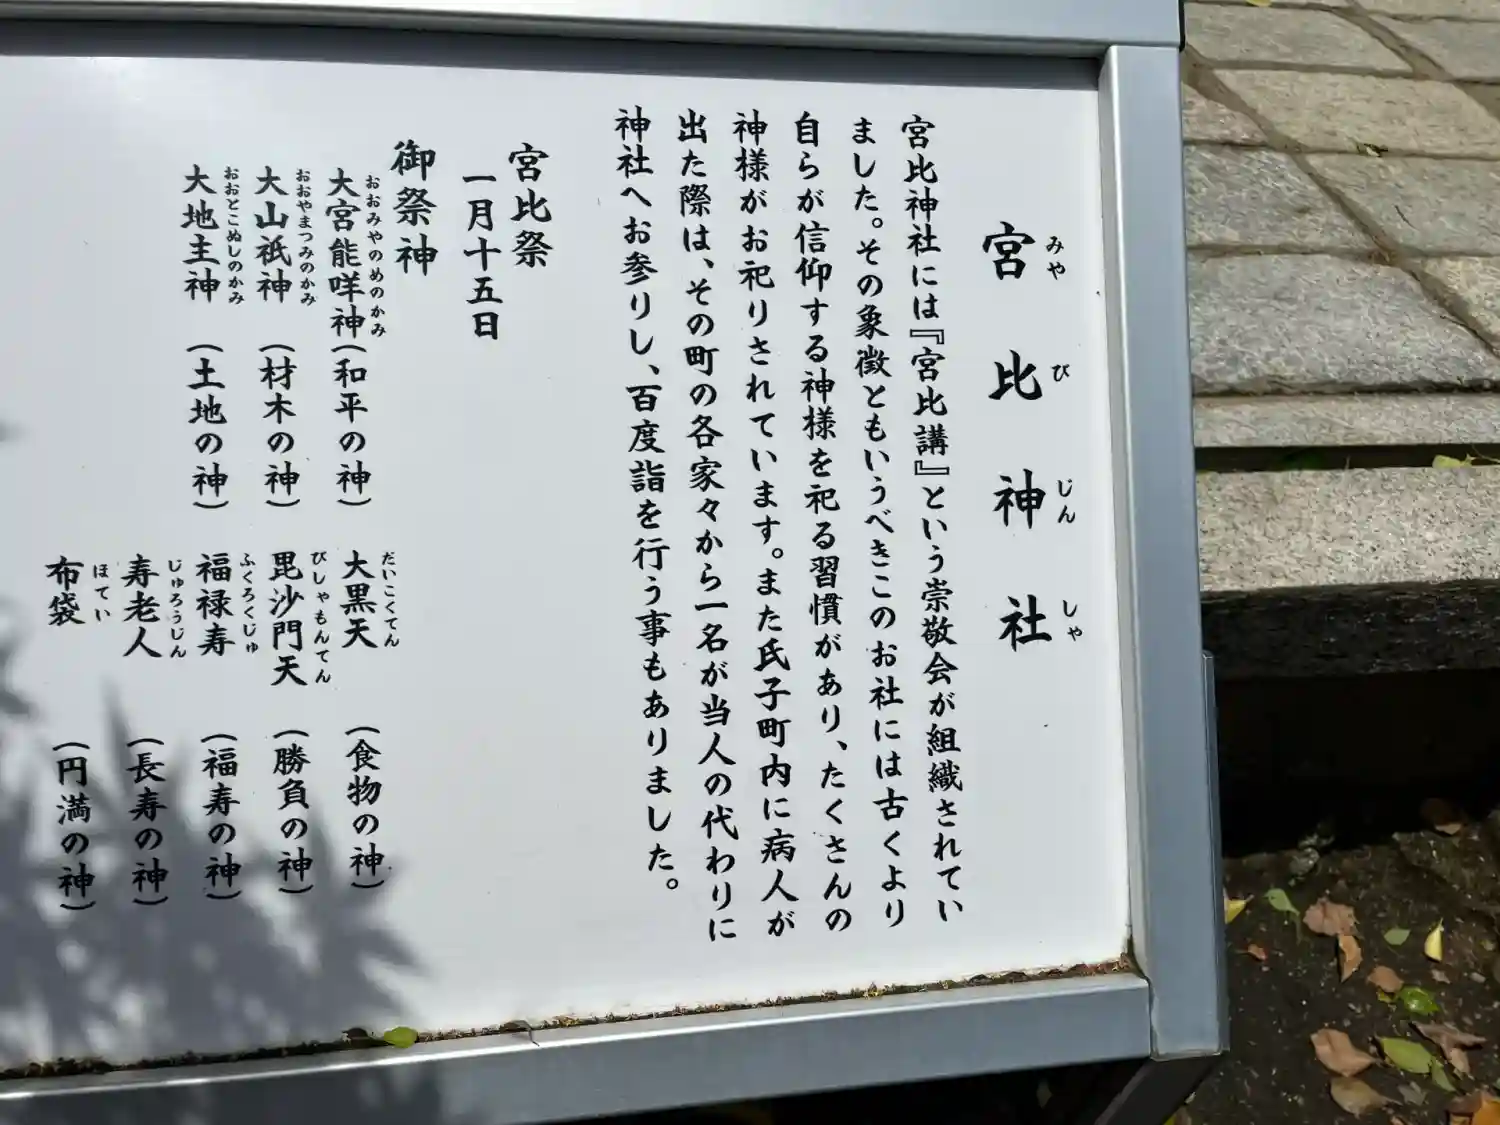 宮比神社
みやびじんしゃ
宮比神社には『宮比講』という崇敬会が組織されてい
ました。その象徴ともいうべきこのお社には古くより
自らが信仰する神様を祀る習慣があり、たくさんの
神様がお祀りされています。また氏子町内に病人が
出た際は、その町の各家々から一名が当人の代わりに
神社へお参りし、百度詣を行う事もありました。
宮比祭
一月十五日
御祭神
おおみやのめのかみ
大宮能咩神(和平の神)
おおやまつみのかみ
大山祇神(材木の神)
おおとこぬしのかみ
大地主神(土地の神)
だいこくてん
大黒天(食物の神)
びしゃもんてん
毘沙門天(勝負の神)
ふくろくじゅ
福禄寿(福寿の神)
じゅろうじん
寿老人(長寿の神)
ほてい
布袋(円満の神)